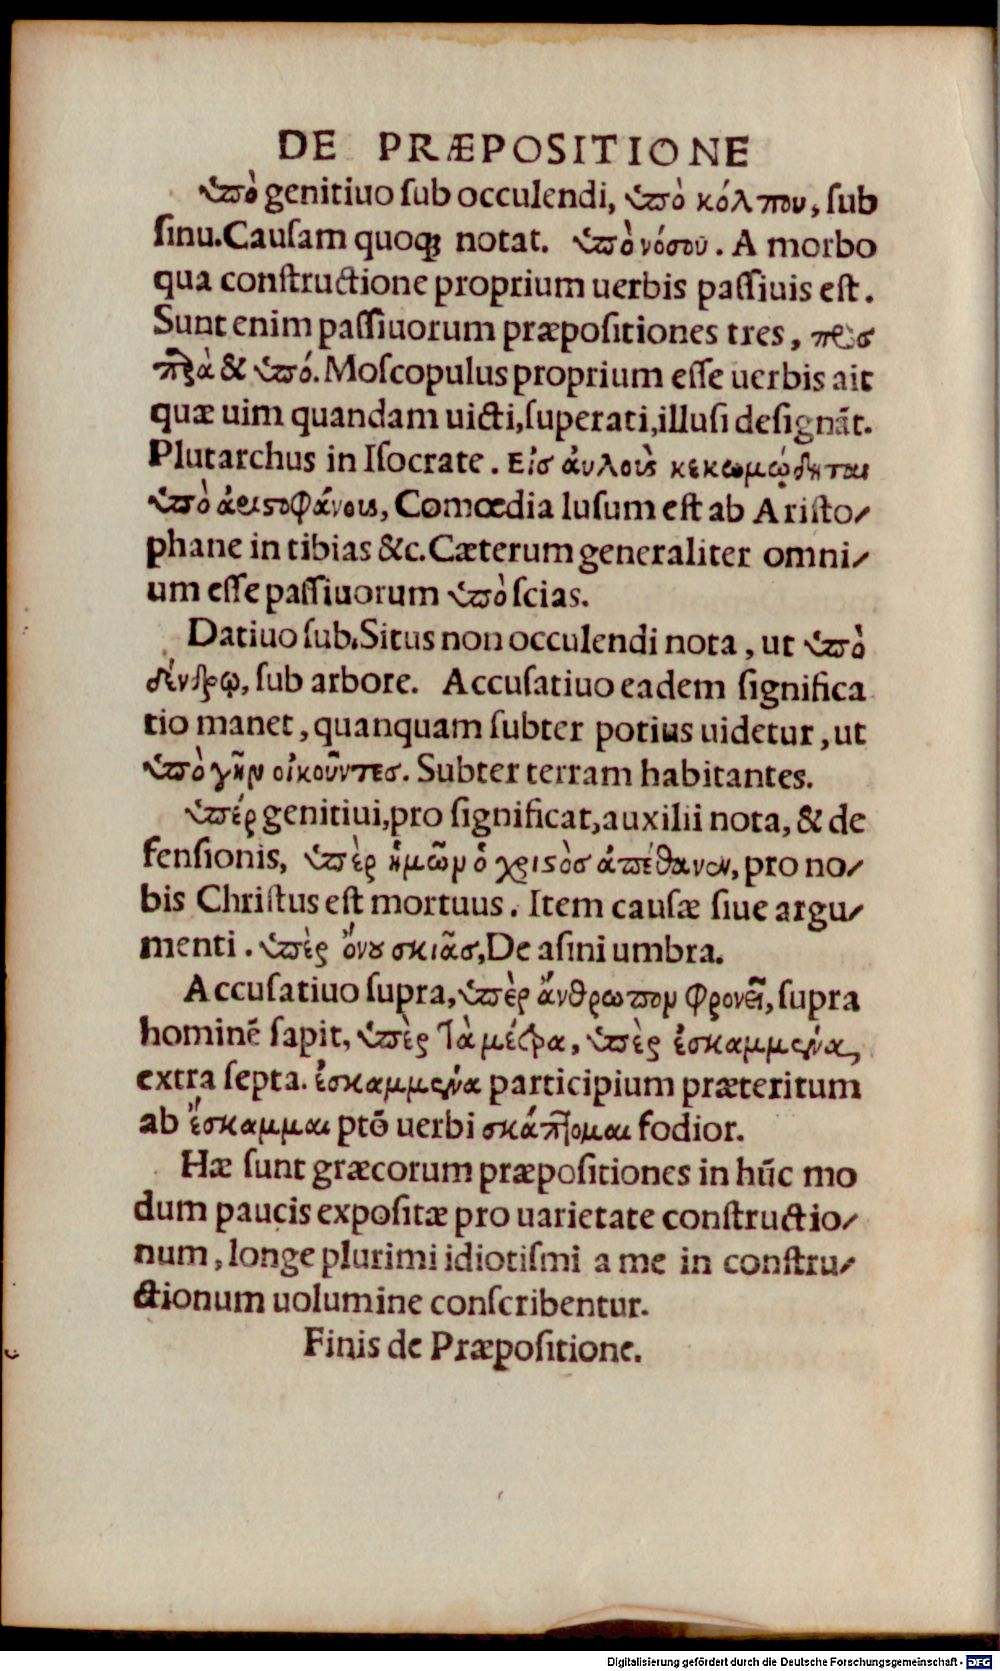 DE PRÆPOSITIONE
ὑπὸ genitiuo ſub occulendi, ὑπὸ κόλπου, ſub
ſinu. Cauſam quoqꝫ notat. ὑπὸ νόσου. A morbo
qua conſtructione proprium uerbis paſſiuis eſt.
Sunt enim paſſiuorum præpoſitiones tres, πρὸσ
παρὰ & ὑπό. Moſcopulus proprium eſſe uerbis ait
quæ uim quandam uicti, ſuperati, illuſi deſignãt.
Plutarchus in Iſocrate. Εἰσ ἀυλοὺς κεκωμῴδηται
ὑπὸ ἀριστοφάνους, Comœdia luſum eſt ab Ariſto/
phane in tibias &c. Cæterum generaliter omni/
um eſſe paſſiuorum ὑπὸ ſcias.
Datiuo ſub. Situs non occulendi nota, ut ὑπὸ
δένδρῳ, ſub arbore. Accuſatiuo eadem ſignifica
tio manet, quanquam ſubter potius uidetur, ut
ὑπὸ γῆν οἰκοῦντεσ. Subter terram habitantes.
ὑπέρ genitiui, pro ſignificat, auxilii nota, & de
fenſionis, ὑπὲρ ἡμῶν ὁ χριστὸσ ἀπέθανεν, pro no/
bis Chriſtus eſt mortuus. Item cauſæ ſiue argu/
menti. ὑπὲρ ὄνου σκιᾶσ, De aſini umbra.
Accuſatiuo ſupra, ὑπὲρ ἄνθρωπον φρονεῖ, ſupra
hominẽ ſapit, ὑπὲρ τὰ μέτρα, ὑπὲρ ἐσκαμμένα,
extra ſepta. ἐσκαμμένα participium præteritum
ab ἔσκαμμαι ptõ uerbi σκάπτομαι fodior.
Hæ ſunt græcorum præpoſitiones in hũc mo
dum paucis expoſitæ pro uarietate conſtructio/
num, longe plurimi idiotiſmi a me in conſtru/
ctionum uolumine conſcribentur.
Finis de Præpoſitione.
Digitalisierung gefördert durch die Deutsche Forschungsgemeinschaft - DFG